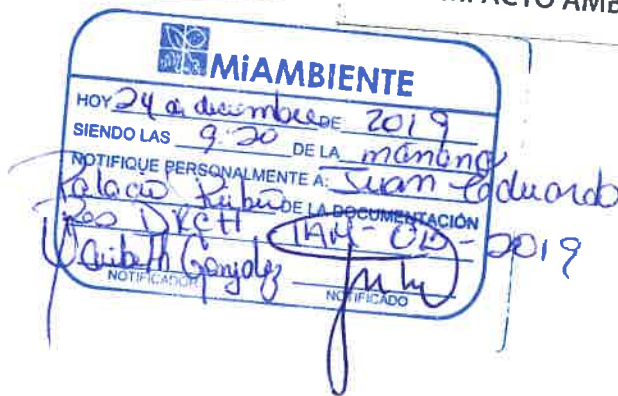 IMPACTO AMB
MiAMBIENTE
HOY 24 de diciembre DE 2019
SIENDO LAS 9:20 DE LA mañana
NOTIFIQUE PERSONALMENTE A: Juan Eduardo
Palacio DE LA DOCUMENTACIÓN
DRCH IAM - - 2019
González
NOTIFICADOR NOTIFICADO